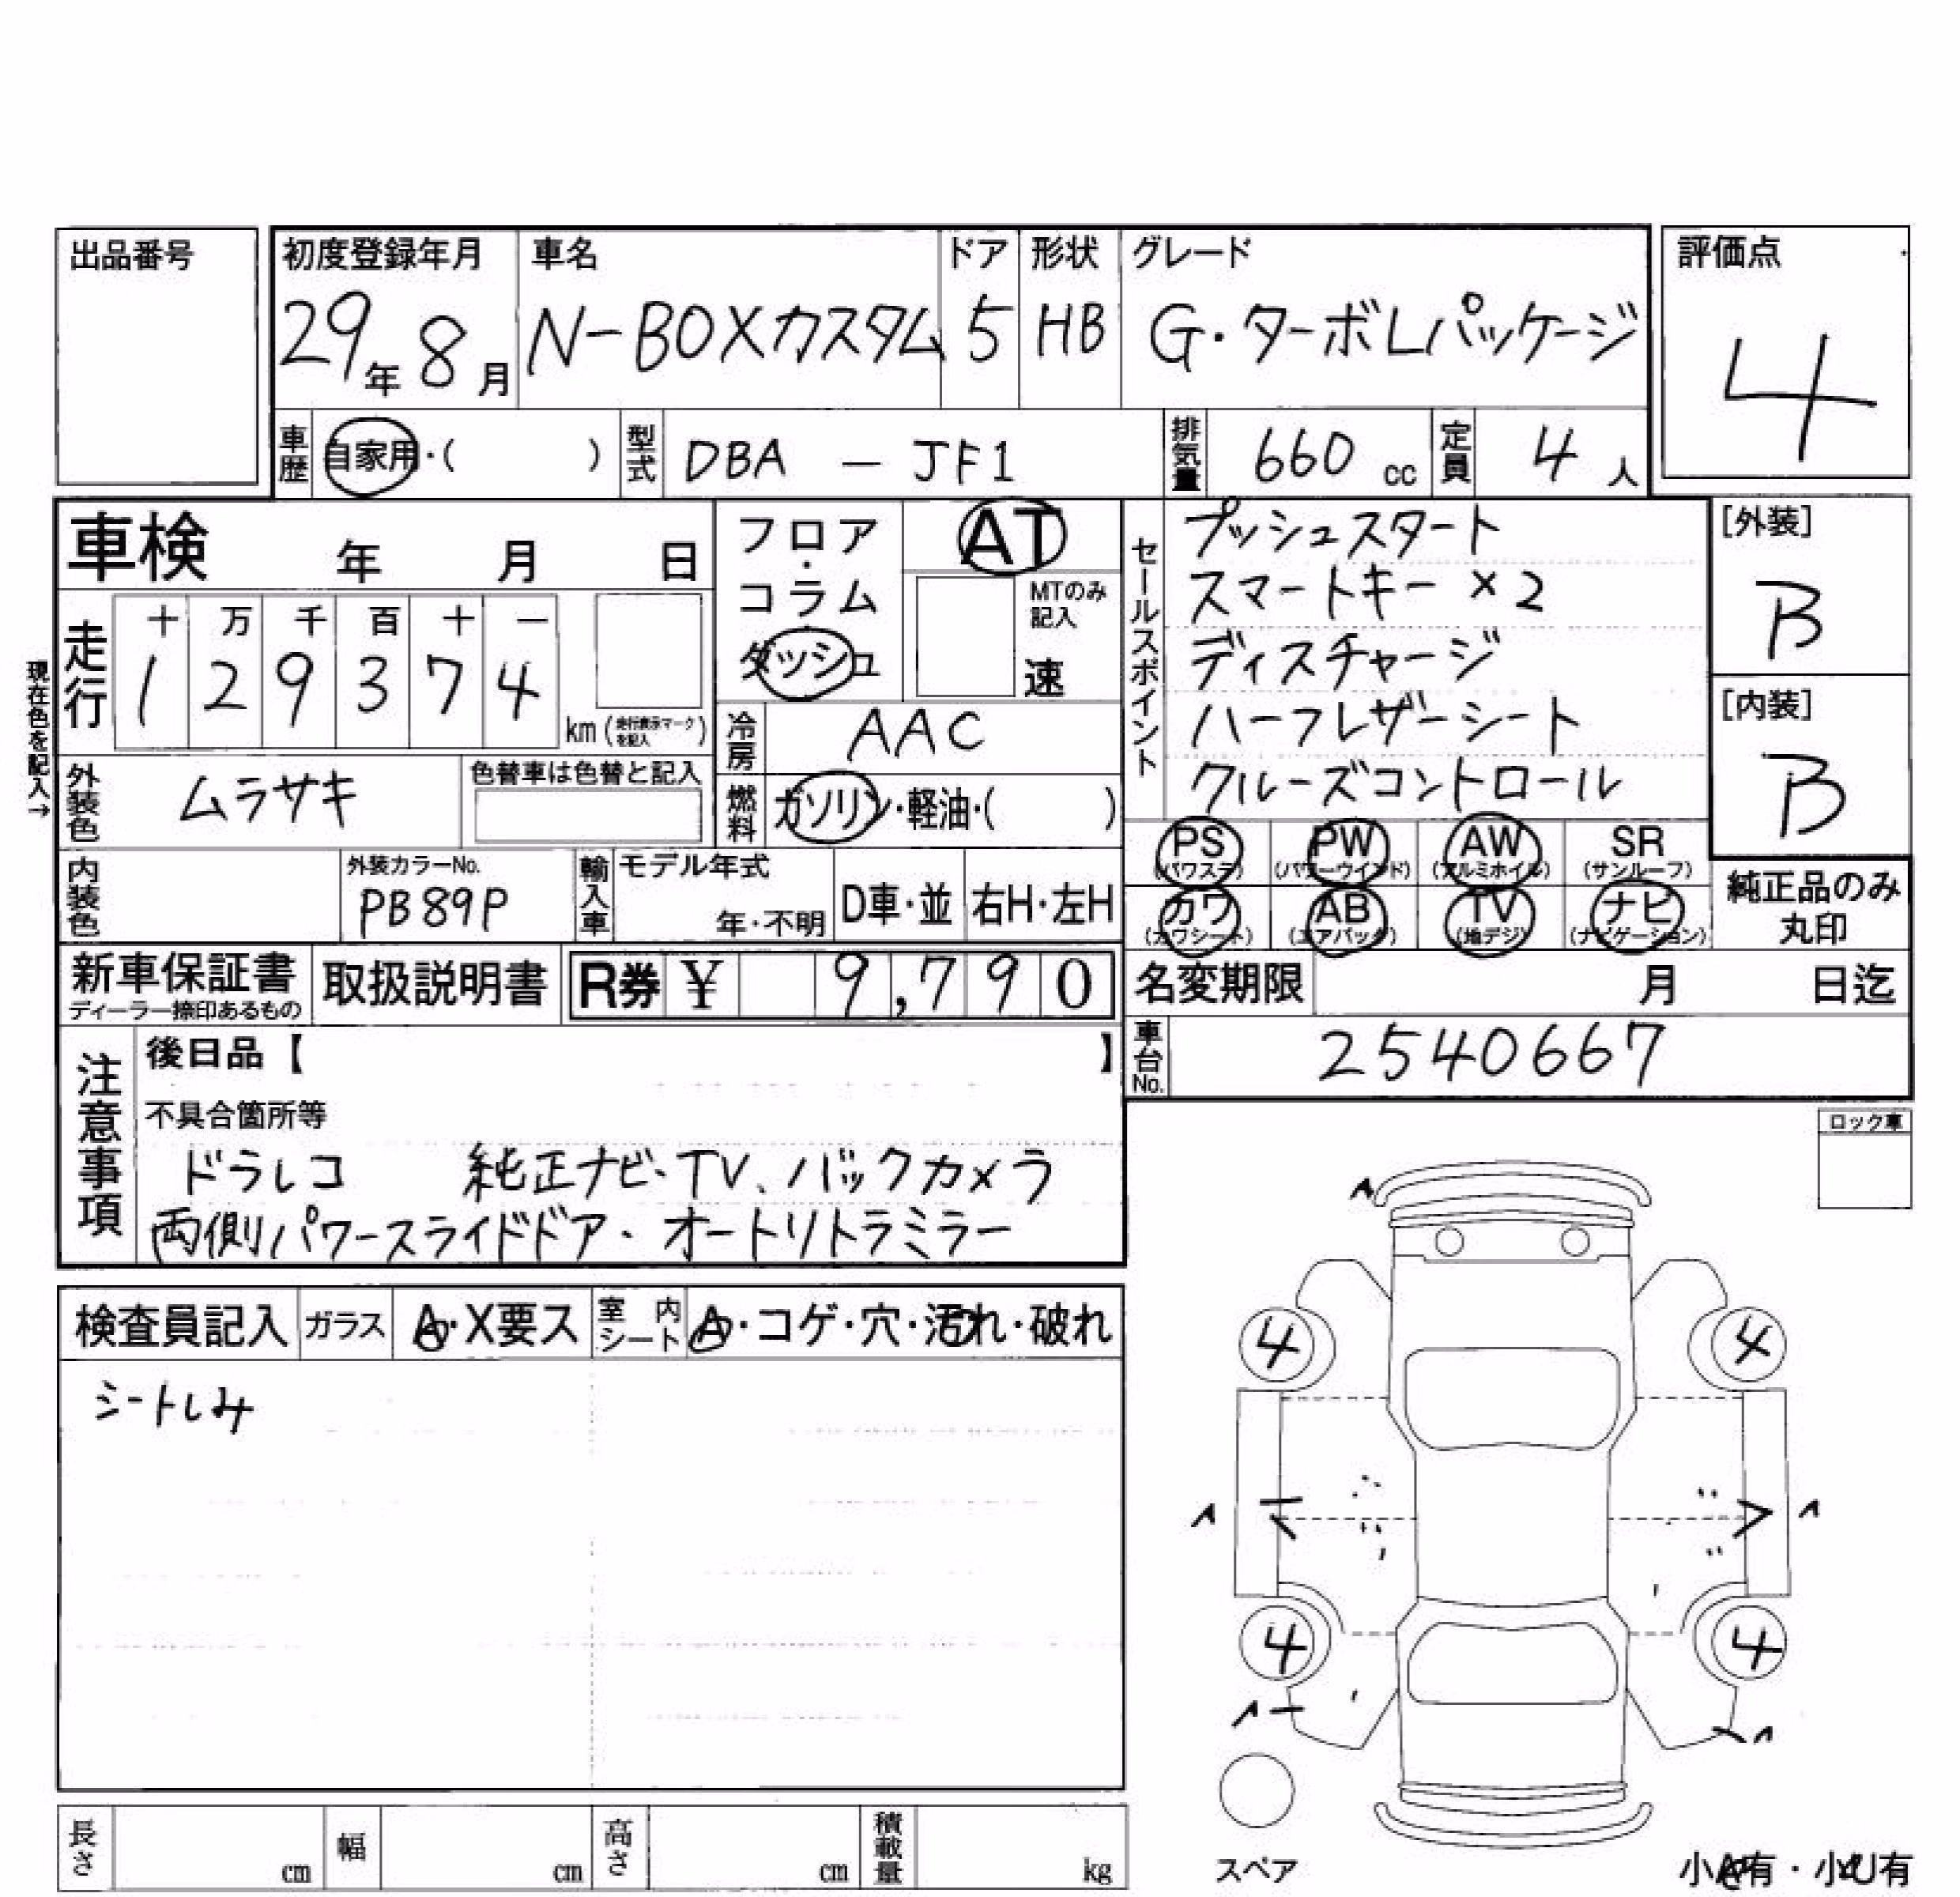 出品番号
初度登録年月 車名 ドア 形状 グレード 評価点
29年8月 N-BOXカスタム 5 HB G・ターボLパッケージ
4
車歴 自家用・( ) 型式 DBA - JF1 排気量 660 cc 定員 4 人
車検 年 月 日
フロア・コラム・ダッシュ
AT
MTのみ記入
速
走行
十 万 千 百 十 一
1 2 9 3 7 4
km (走行表示マークを記入)
現在色を記入→
冷房 AAC
外装色 ムラサキ
色替車は色替と記入
燃料 ガソリン・軽油・( )
内装色
外装カラーNo.
PB89P
輸入車 モデル年式
年・不明 D車・並 右H・左H
セールスポイント
プッシュスタート
スマートキー ×2
ディスチャージ
ハーフレザーシート
クルーズコントロール
[外装]
B
[内装]
B
PS (パワステ) PW (パワーウインド) AW (アルミホイル) SR (サンルーフ)
カワ (カワシート) AB (エアバック) TV (地デジ) ナビ (ナビゲーション)
純正品のみ
丸印
新車保証書 取扱説明書 R券 ¥ 9,790
ディーラー捺印あるもの
名変期限 月 日迄
車台No. 2540667
注意事項
後日品【 】
不具合箇所等
ドラレコ 純正ナビ・TV、バックカメラ
両側パワースライドドア・オートリトラミラー
ロック車
検査員記入 ガラス A・X要ス 室内シート A・コゲ・穴・汚れ・破れ
シートしみ
A
4 4
A A
4 4
A A
スペア
小A有・小U有
長さ cm 幅 cm 高さ cm 積載量 kg